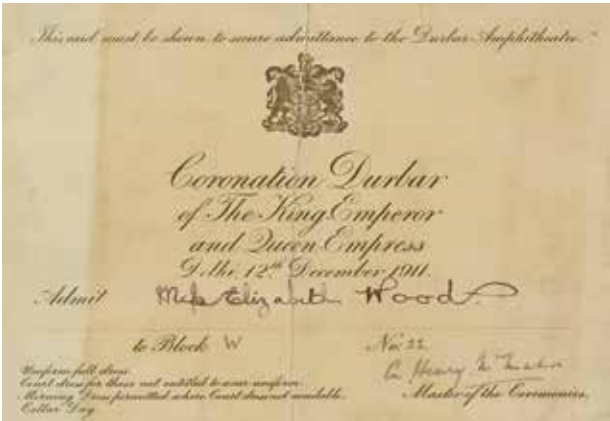 This card must be shown to secure admittance to the Durbar Amphitheatre.
Coronation Durbar
of The King Emperor
and Queen Empress
Delhi 12th December 1911.
Admit Miss Elizabeth Wood.
to Block W No. 22
A Henry McMahon
Master of the Ceremonies.
Uniform full dress.
Court dress for those not entitled to wear uniform.
Morning Dress permitted where Court dress not available.
Collar Day.